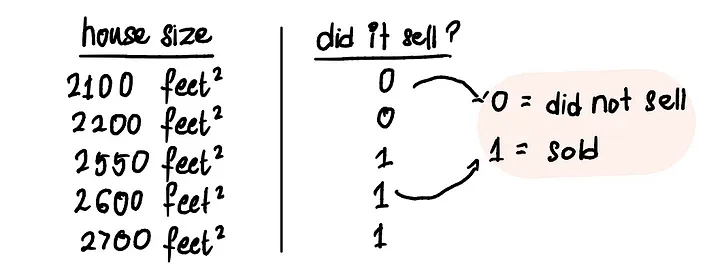 house size
did it sell?
2100 feet²
0
2200 feet²
0
2550 feet²
1
2600 feet²
1
2700 feet²
1
0 = did not sell
1 = sold